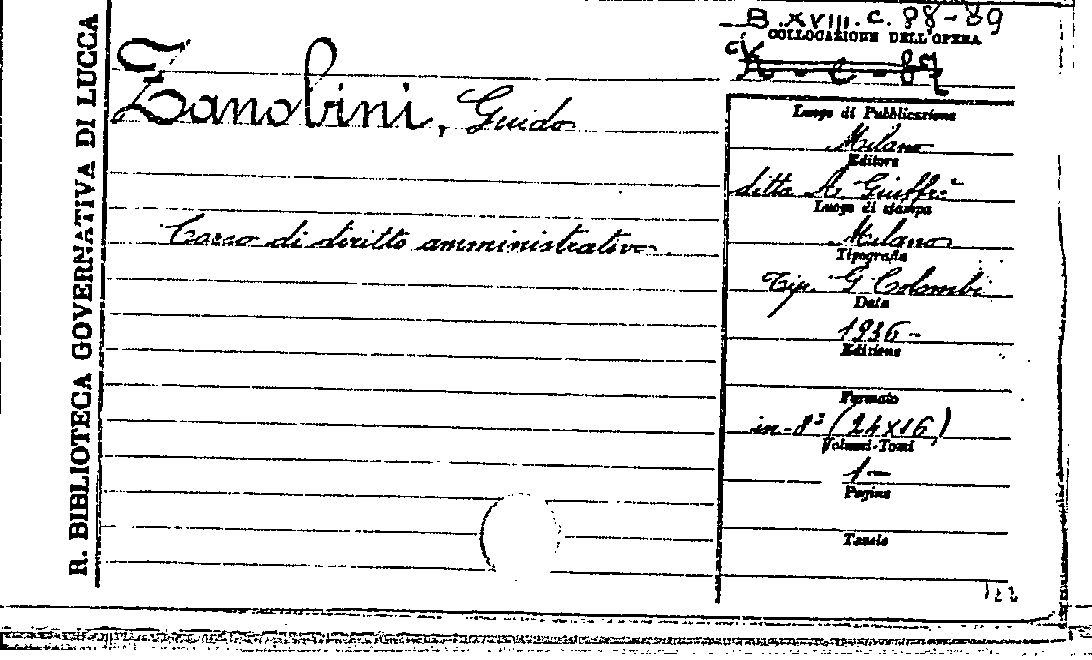 R. BIBLIOTECA GOVERNATIVA DI LUCCA
B.XVIII.C. 88-89
COLLOCAZIONE DELL'OPERA
Zanobini, Guido
Corso di diritto amministrativo
Luogo di Pubblicazione
Milano
Editore
ditta A. Giuffrè
Luogo di stampa
Milano
Tipografia
Tip. G. Colombi
Data
1936-
Edizione
Formato
in-8º (24x16)
Volumi-Tomi
1-
Pagine
Tavole